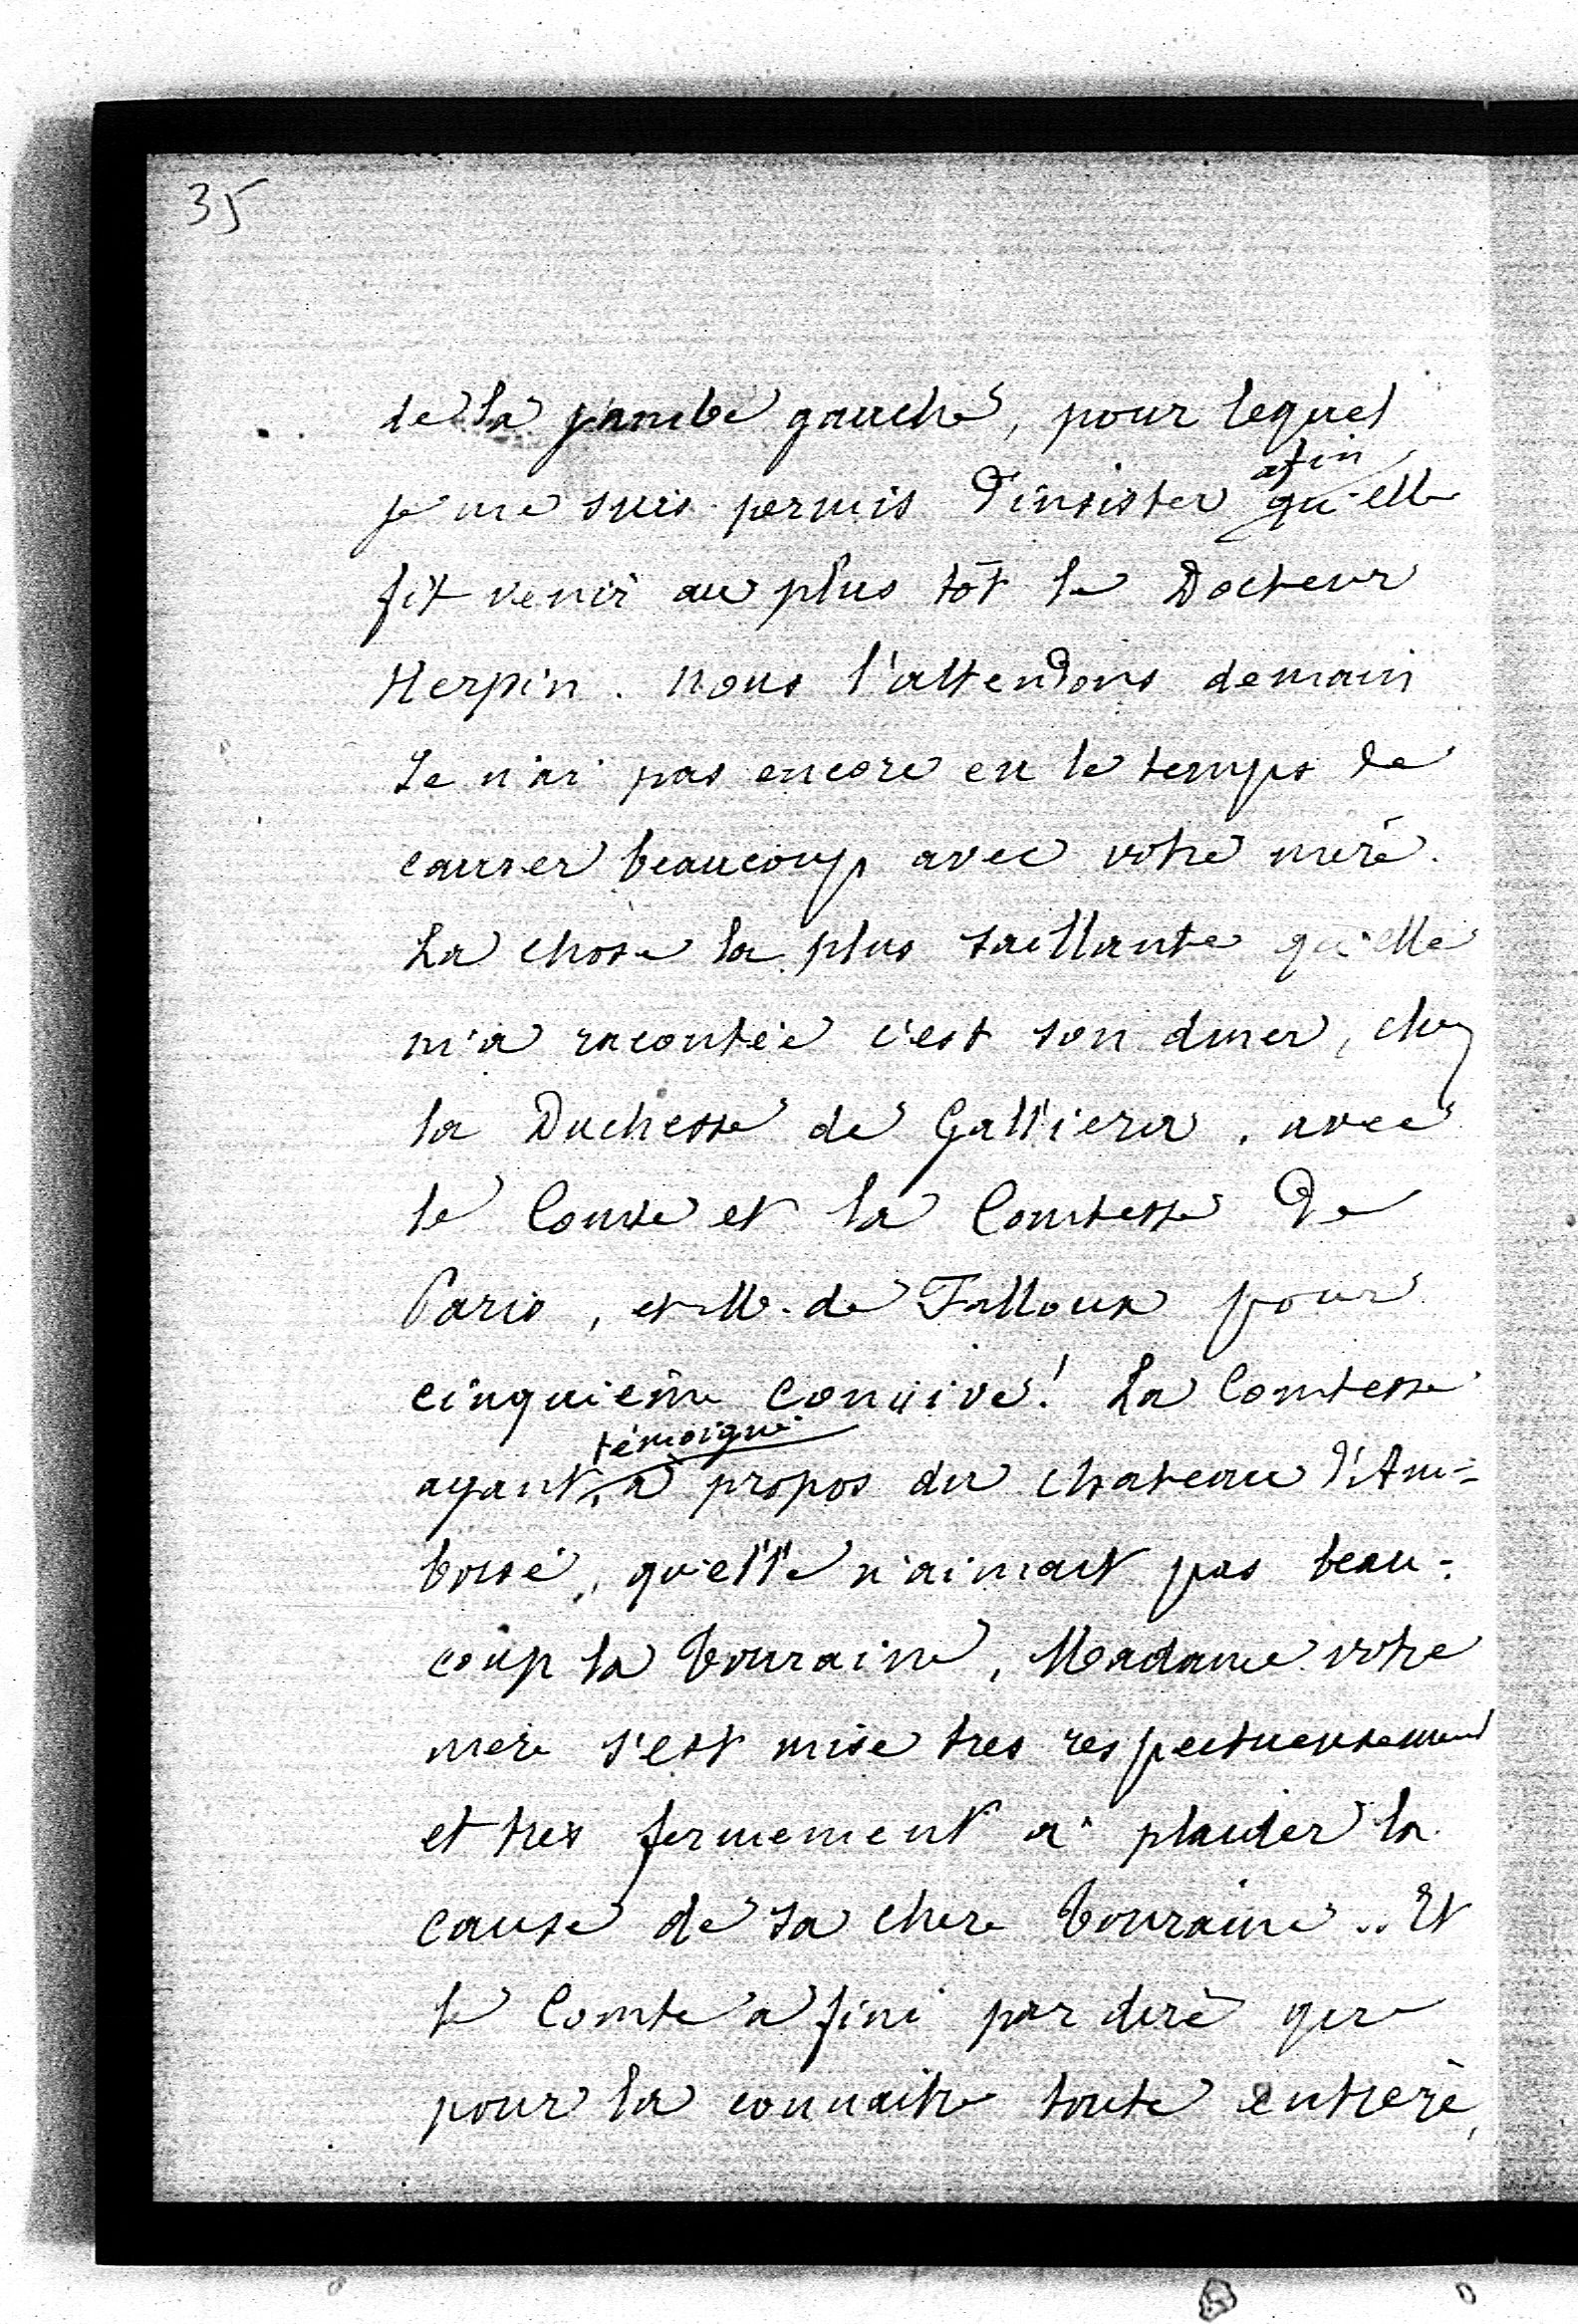 35
de la jambe gauche, pour lequel
afin
je me suis permis d'insister qu'elle
fit venir au plus tôt le Docteur
Herpin. Nous l'attendons demain
Je n'ai pas encore eu le temps de
causer beaucoup avec votre mère.
La chose la plus saillante qu'elle
m'a racontée c'est son diner, chez
la Duchesse de Galliera, avec
le Comte et la Comtesse de
Paris, et M. de Falloux pour
cinquième convive! La Comtesse
témoigné
ayant, à propos du chateau d'Am=
boise, qu'elle n'aimait pas beau=
coup la Touraine, Madame votre
mère s'est mise tres respectueusement
et tres fermement a plaider la
cause de sa chere Touraine.. Et
le Comte a fini par dire que
pour la connaitre toute entiere,